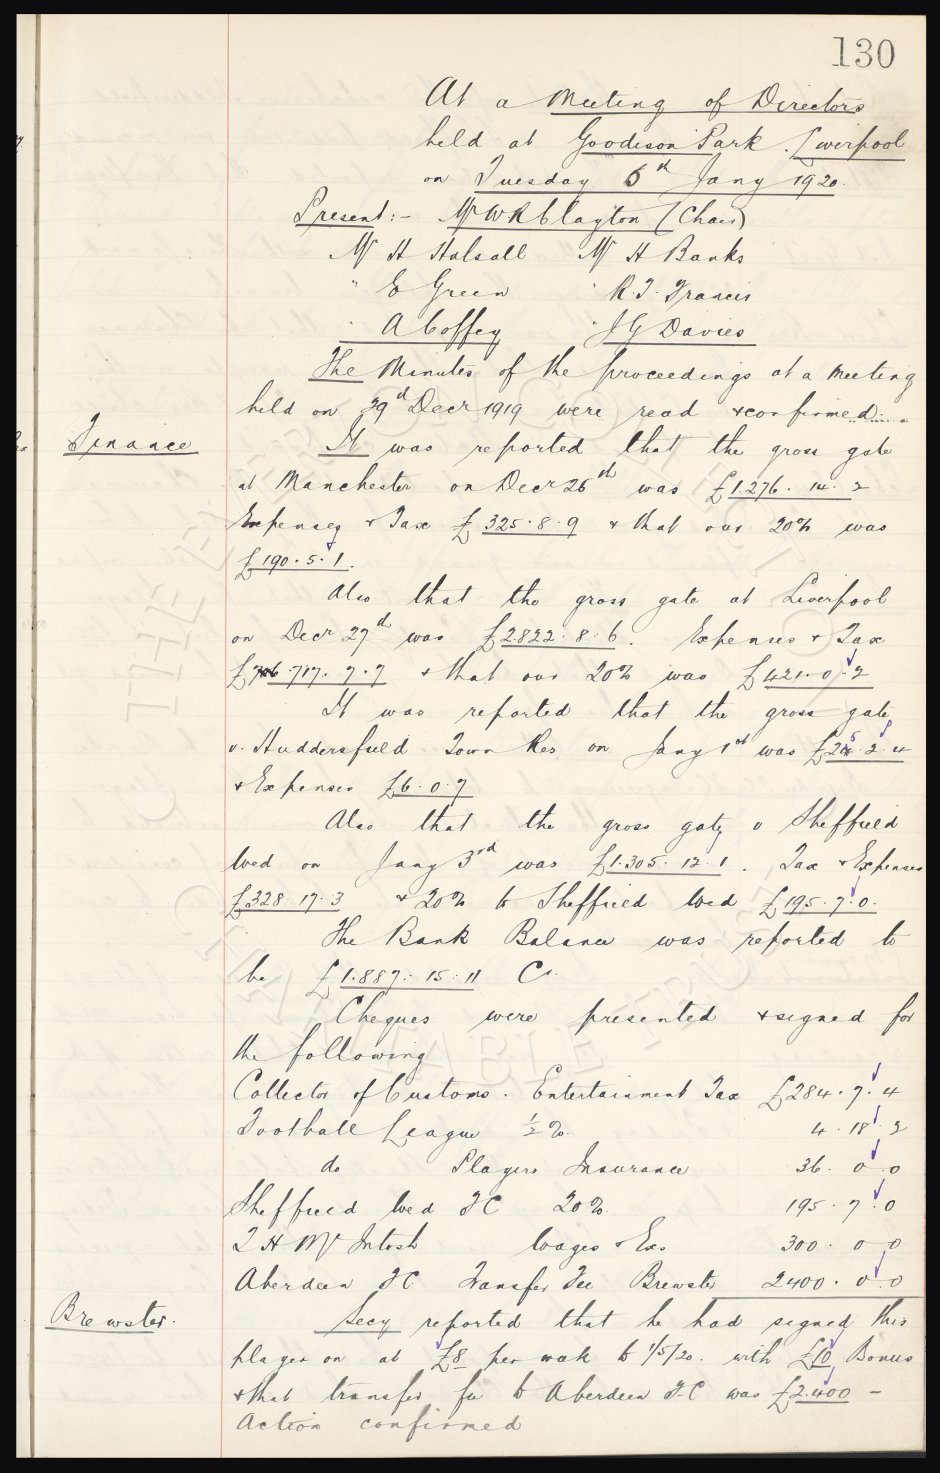 130
At a Meeting of Directors
held at Goodison Park. Liverpool
on Tuesday 6th Jany 1920.
Present:- Mr W R Clayton (Chair)
Mr H Halsall Mr H Banks
" E Green " R. T. Francis
" A Coffey " J G Davies
The Minutes of the proceedings at a meeting
held on 29th Decr 1919 were read & confirmed.
Finance It was reported that the gross gate
at Manchester on Decr 26th was £1.276. 14. 2
Expenses & Tax £325. 8. 9 & that our 20% was
£190. 5. 1.
Also that the gross gate at Liverpool
on Decr 27th was £2822. 8. 6. Expenses & Tax
£706 717. 7. 7 & that our 20% was £421. 0. 2
It was reported that the gross gate
v. Huddersfield Town Res on Jany 1st was £245. 2. 4
& Expenses £6. 0. 7
Also that the gross gate v Sheffield
Wed on Jany 3rd was £1.305. 12. 1. Tax & Expenses
£328. 17. 3 & 20% to Sheffield Wed £195. 7. 0.
The Bank Balance was reported to
be £1.887. 15. 11 Cr.
Cheques were presented & signed for
the following
Collector of Customs. Entertainment Tax £284. 7. 4
Football League ½%. 4. 18. 2
do Players Insurance 36. 0. 0
Sheffield Wed FC 20%. 195. 7. 0
T H McIntosh Wages & Exs 300. 0. 0
Aberdeen FC Transfer Fee Brewster 2400. 0. 0
Brewster. Secy reported that he had signed this
player on at £8 per week to 1/5/20. with £10 Bonus
& that transfer fee to Aberdeen F.C was £2.400 -
Action confirmed
THE EVERTON COLLECTION
CHARITABLE TRUST